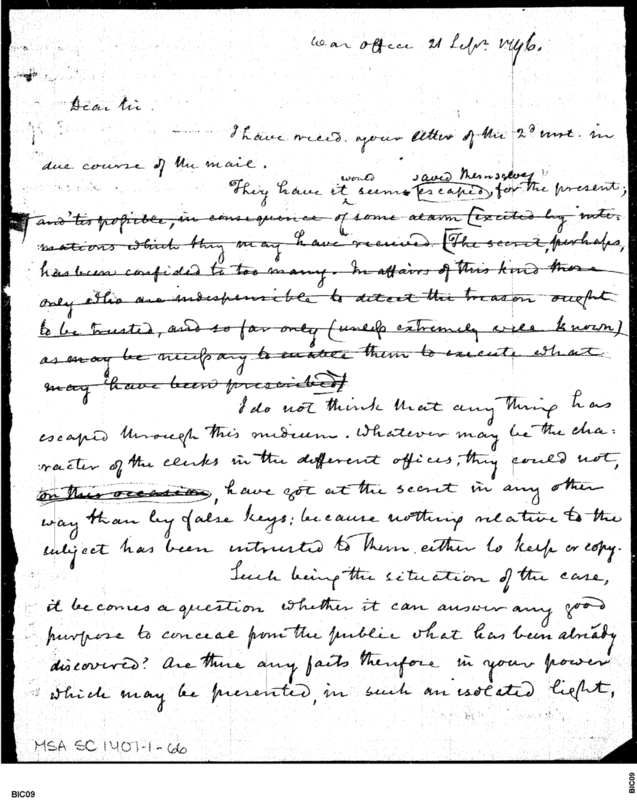 War office 21 Sepr. 1796.
Dear Sir.
I have recd. your letter of the 2d inst. in
due course of the mail.
would saved themselves
They have it seems escaped for the present;
and 'tis possible, in consequence of some alarm [excited by inti-
mations which they may have received. [The secret, perhaps,
has been confided to too many. In affairs of this kind those
only who are indispensible to detect the treason ought
to be trusted, and so far only (unless extremely well known)
as may be necessary to enable them to execute what
may have been prescribed]
I do not think that any thing has
escaped through this medium. Whatever may be the cha-
racter of the clerks in the different offices; they could not,
on this occasion, have got at the secret in any other
way than by false keys; because nothing relative to the
subject has been intrusted to them either to keep or copy.
Such being the situation of the case,
it becomes a question whether it can answer any good
purpose to conceal from the public what has been already
discovered? Are there any facts therefore in your power
which may be presented, in such an isolated light,
MSA SC 1401-1-66
BIC09
BIC09